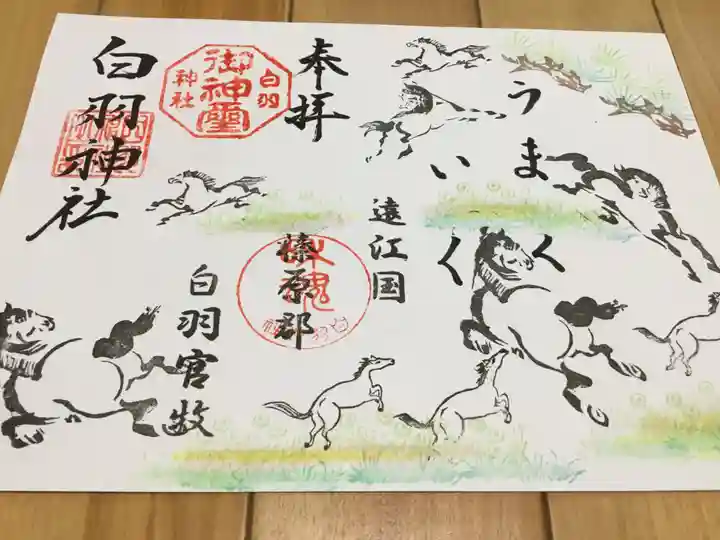 奉拝
うまくいく
遠江国
榛原郡
白羽官牧
白羽神社
御神璽
白羽
神社